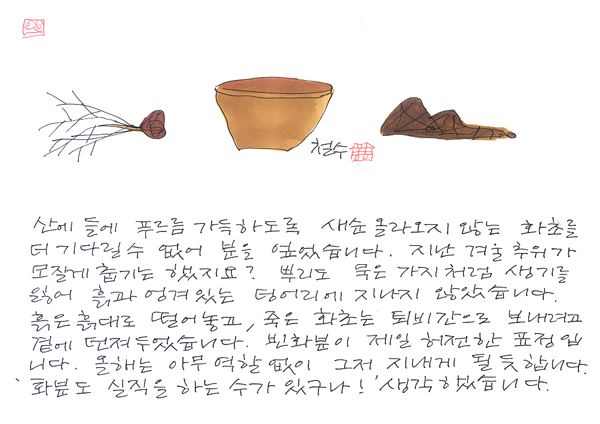 철수
산에 들에 푸르름 가득하도록 새순 올라오지 않는 화초를
더 기다릴 수 없어 분을 엎었습니다. 지난 겨울 추위가
모질게 춥기는 했지요? 뿌리도 묵은 가지처럼 생기를
잃어 흙과 엉겨있는 덩어리에 지나지 않았습니다.
흙은 흙대로 떨어놓고, 죽은 화초는 퇴비간으로 보내려고
곁에 던져두었습니다. 빈화분이 제일 허전한 표정입
니다. 올해는 아무 역할 없이 그저 지내게 될 듯합니다.
'화분도 실직을 하는 수가 있구나!' 생각했습니다.